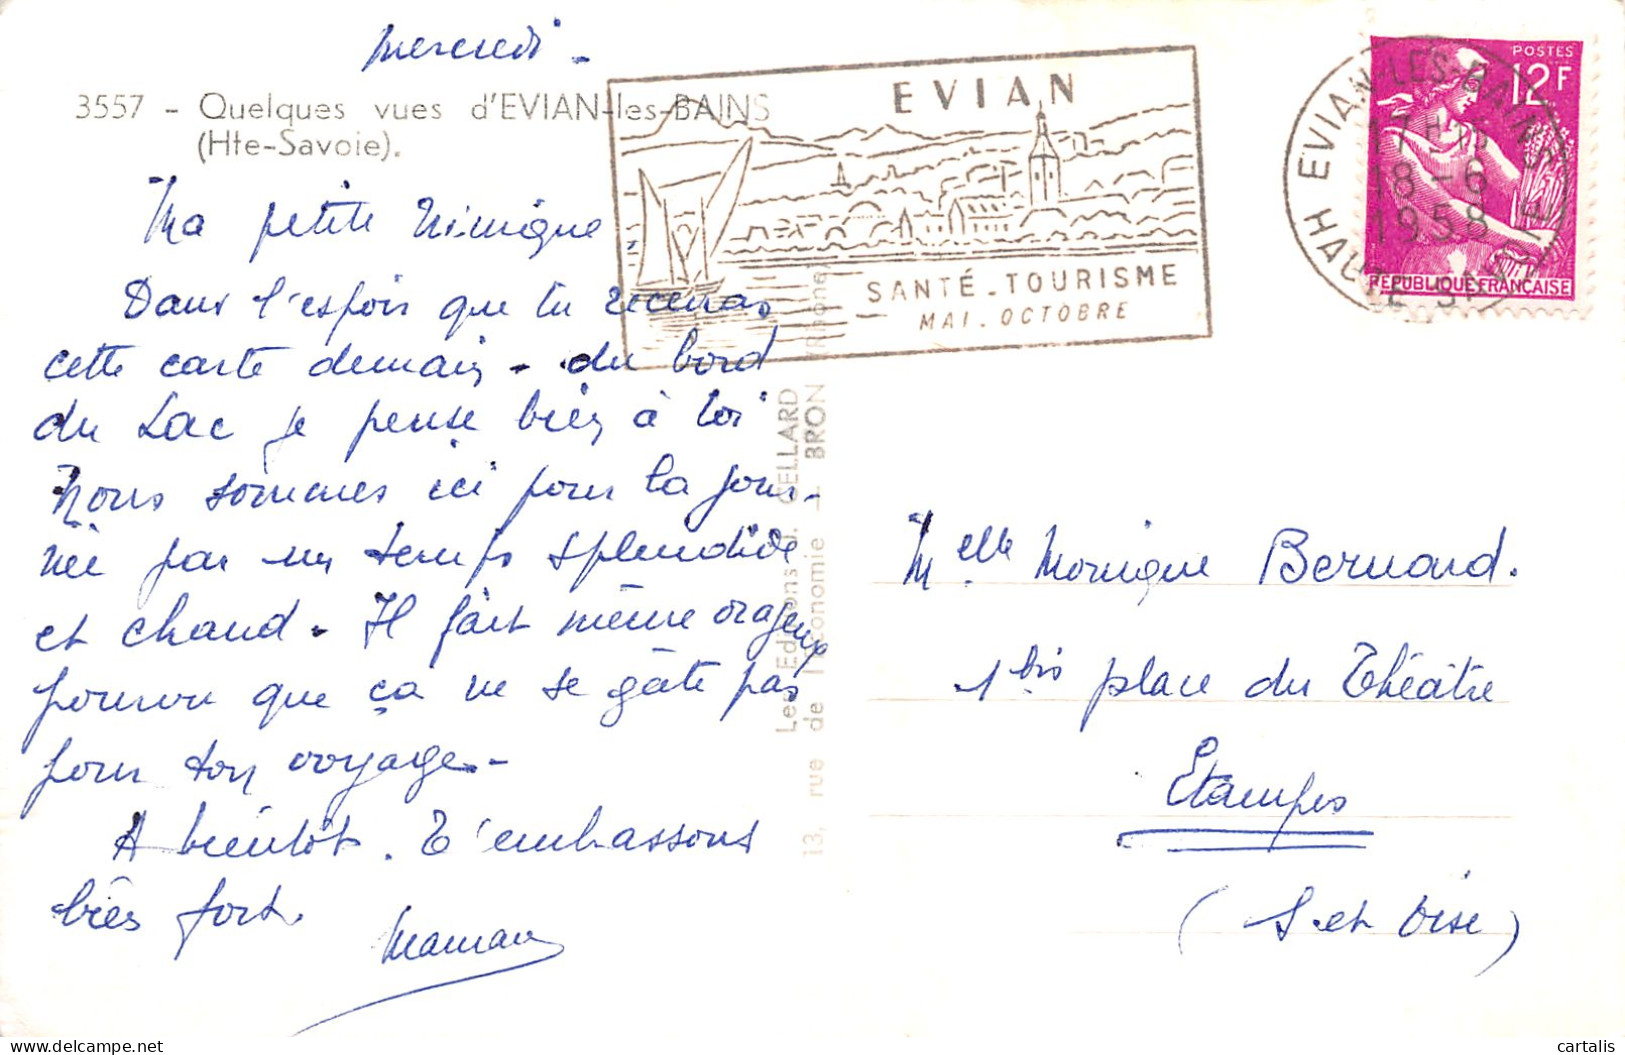 mercredi -
3557 - Quelques vues d'EVIAN-les-BAINS
(Hte-Savoie).
Ma petite Nimique
Dans l'espoir que tu recevras
cette carte demain - du bord
du Lac je pense bien à toi
Nous sommes ici pour la jour-
née par un temps splendide
et chaud - Il fait même orageux
pourvu que ça ne se gâte pas
pour ton voyage -
A bientôt. T'embrassons
bien fort.
Maman
EVIAN
SANTÉ - TOURISME
MAI - OCTOBRE
EVIAN-LES-BAINS
17H
18-6
1958
HAUTE-SAVOIE
POSTES
12F
REPUBLIQUE FRANÇAISE
Les Editions J. CELLARD
13, rue de l'Economie - BRON (Rhône)
Melle Monique Bernard.
1bis place du Théâtre
Etampes
(S. et Oise)
delcampe.net
cartalis